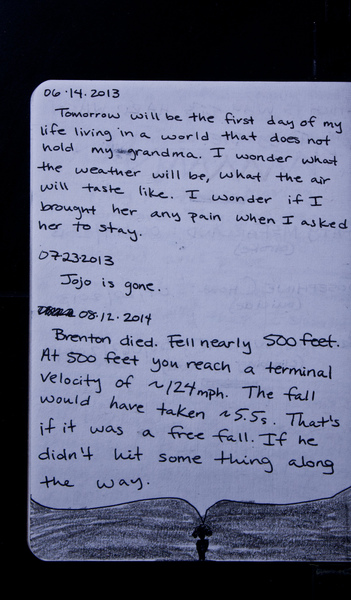 06.14.2013
Tomorrow will be the first day of my
life living in a world that does not
hold my grandma. I wonder what
the weather will be, what the air
will taste like. I wonder if I
brought her any pain when I asked
her to stay.
07232013
Jojo is gone.
08.12.2014
Brenton died. Fell nearly 500 feet.
At 500 feet you reach a terminal
velocity of ~124mph. The fall
would have taken ~5.5s. That's
if it was a free fall. If he
didn't hit some thing along
the way.